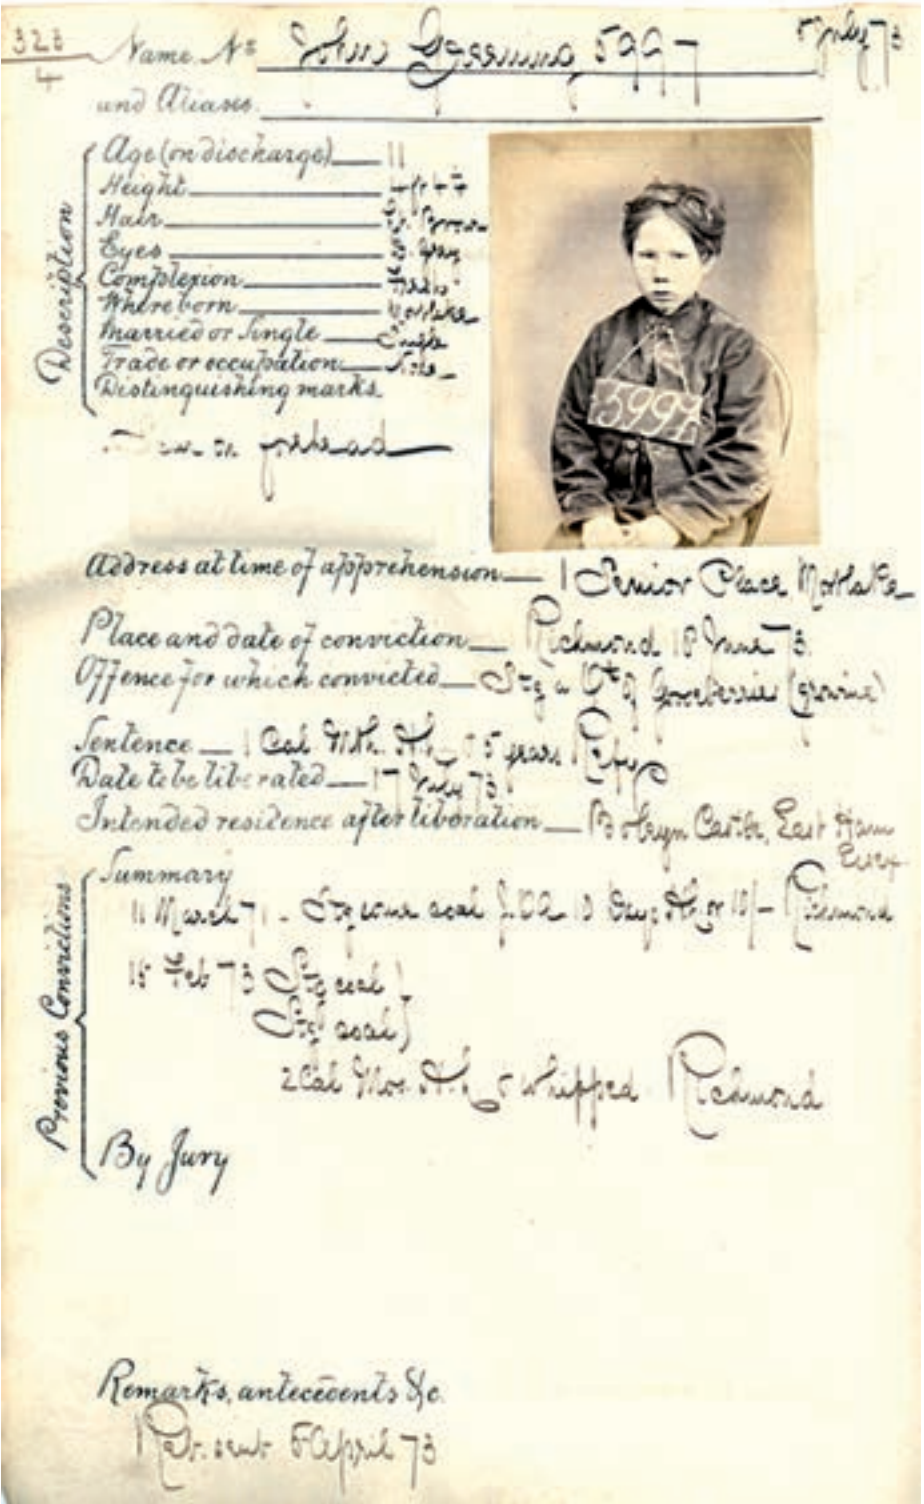 323
4
Name. No John Greening 5997 5 July 73
and Aliases.
Description
Age (on discharge) 11
Height 4 ft 4
Hair Brown
Eyes
Complexion
Where born Mortlake
Married or Single Single
Trade or occupation None
Distinguishing marks.
on forehead
5997
Address at time of apprehension 1 Senior Place Mortlake
Place and date of conviction Richmond 18 June 73.
Offence for which convicted Stg a Qt of Gooseberries (growing)
Sentence 1 Cal Mth. H.L. & 5 years Refy
Date to be liberated 17 July 73
Intended residence after liberation Boleyn Castle, East Ham
Essex
Previous Convictions
Summary
11 March 71 - Stg some coal 10 Days H.L. or 10/- Richmond
15 Feb 73 Stg coal }
Stg coal }
2 Cal Mos. H.L. & whipped Richmond
By Jury
Remarks, antecedents &c.
Ret. sent 5 April 73